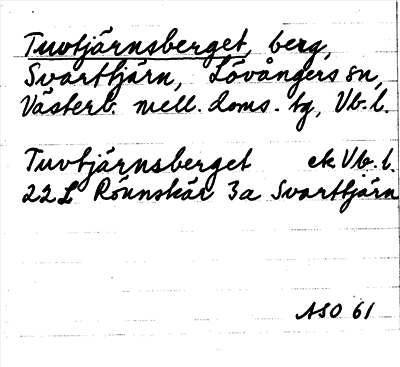 Tuvtjärnsberget, berg,
Svarttjärn, Lövångers sn,
Västerb. mell. doms. tg, Vb. l.
Tuvtjärnsberget ek Vb. l.
22L Rönnskär 3a Svarttjärn
ASO 61